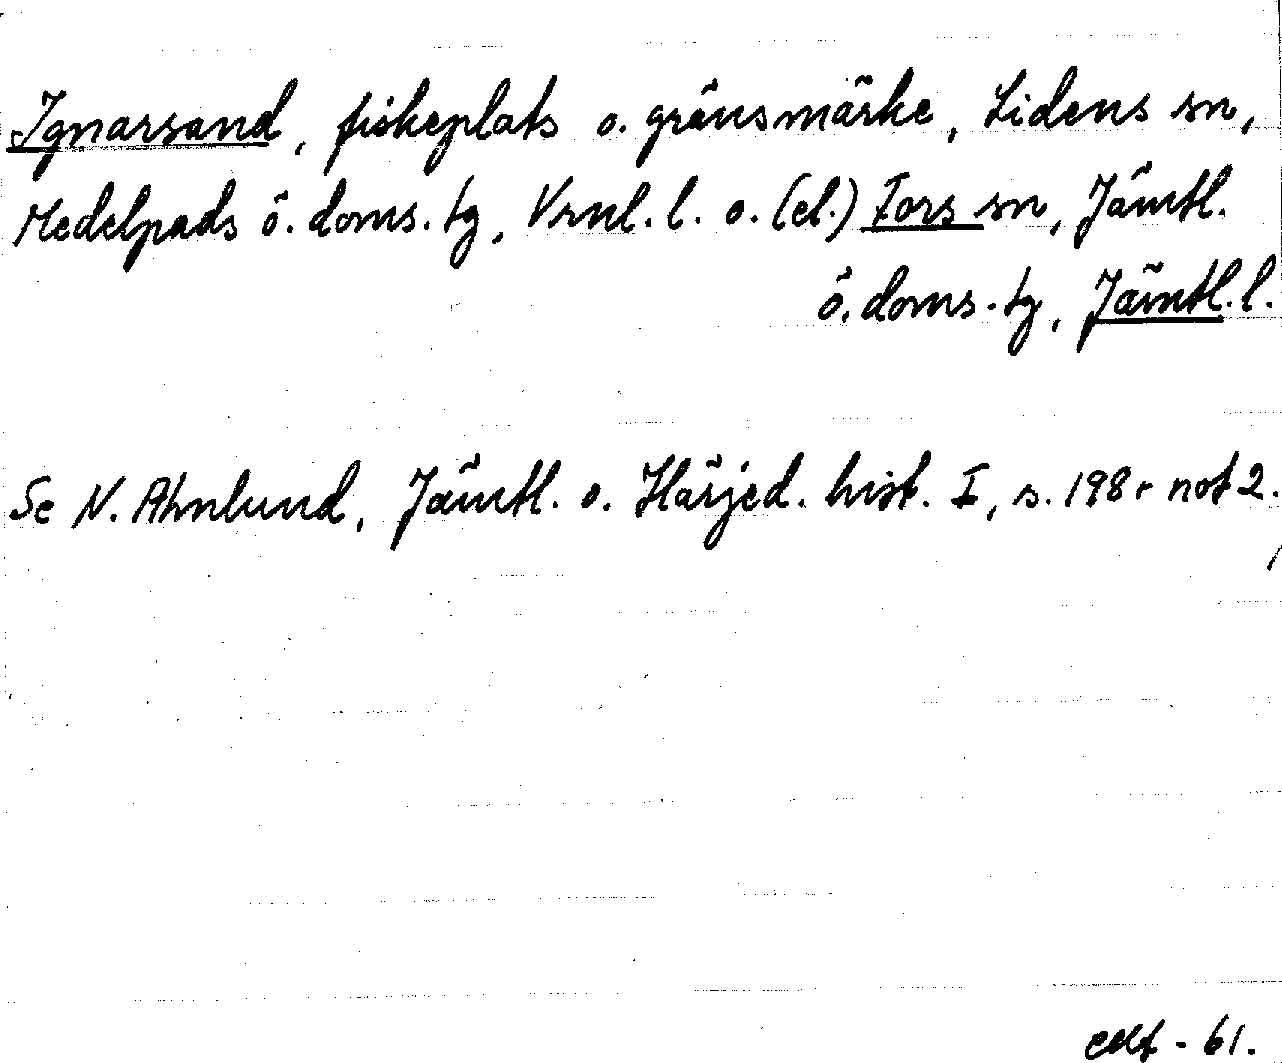 Ignarsand, fiskeplats o. gränsmärke, Lidens sn,
Medelpads ö. doms. tg, Vrnl. l. o. (el.) Fors sn, Jämtl.
ö. doms. tg, Jämtl. l.
Se N. Ahnlund, Jämtl. o. Härjed. hist. I, s. 198 not 2.
- 61.